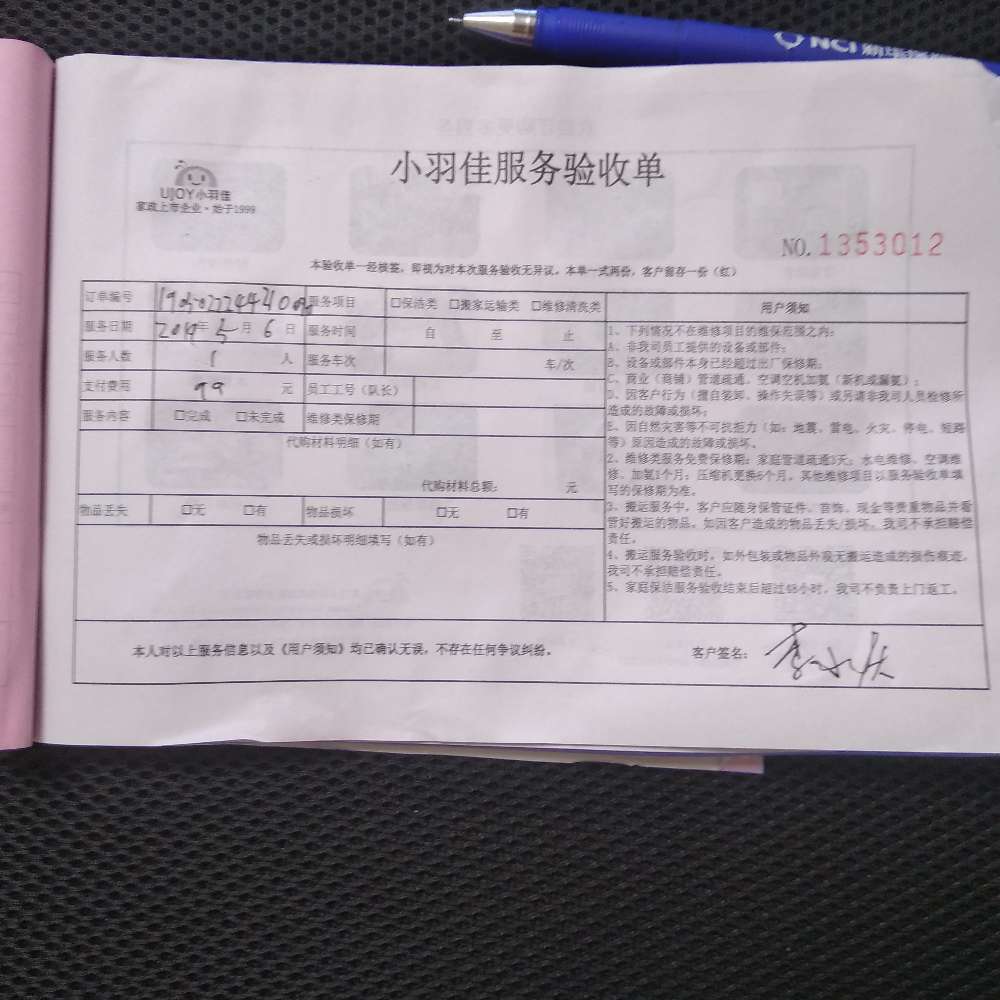 NCI
小羽佳服务验收单
UJOY小羽佳
家政上市企业·始于1999
NO.1353012
本验收单一经核签，即视为对本次服务验收无异议。本单一式两份，客户留存一份（红）
订单编号 服务项目 □保洁类 □搬家运输类 □维修清洗类
服务日期 2019年5月6日 服务时间 自 至 止
服务人数 1 人 服务车次 车/次
支付费用 99 元 员工工号（队长）
服务内容 □完成 □未完成 维修类保修期
代购材料明细（如有）
代购材料总额： 元
物品丢失 □无 □有 物品损坏 □无 □有
物品丢失或损坏明细填写（如有）
用户须知
1、下列情况不在维修项目的维保范围之内：
A、非我司员工提供的设备或部件；
B、设备或部件本身已经超过出厂保修期；
C、商业（商铺）管道疏通、空调空机加氨（新机或漏氨）；
D、因客户行为（擅自装卸、操作失误等）或另请非我司人员检修所
造成的故障或损坏；
E、因自然灾害等不可抗拒力（如：地震、雷电、火灾、停电、短路
等）原因造成的故障或损坏。
2、维修类服务免费保修期：家庭管道疏通3天；水电维修、空调维
修、加氨1个月；压缩机更换6个月。其他维修项目以服务验收单填
写的保修期为准。
3、搬运服务中，客户应随身保管证件、首饰、现金等贵重物品并看
管好搬运的物品。如因客户造成的物品丢失/损坏，我司不承担赔偿
责任。
4、搬运服务验收时，如外包装或物品外观无搬运造成的损伤痕迹，
我司不承担赔偿责任。
5、家庭保洁服务验收结束后超过48小时，我司不负责上门返工。
本人对以上服务信息以及《用户须知》均已确认无误，不存在任何争议纠纷。 客户签名：